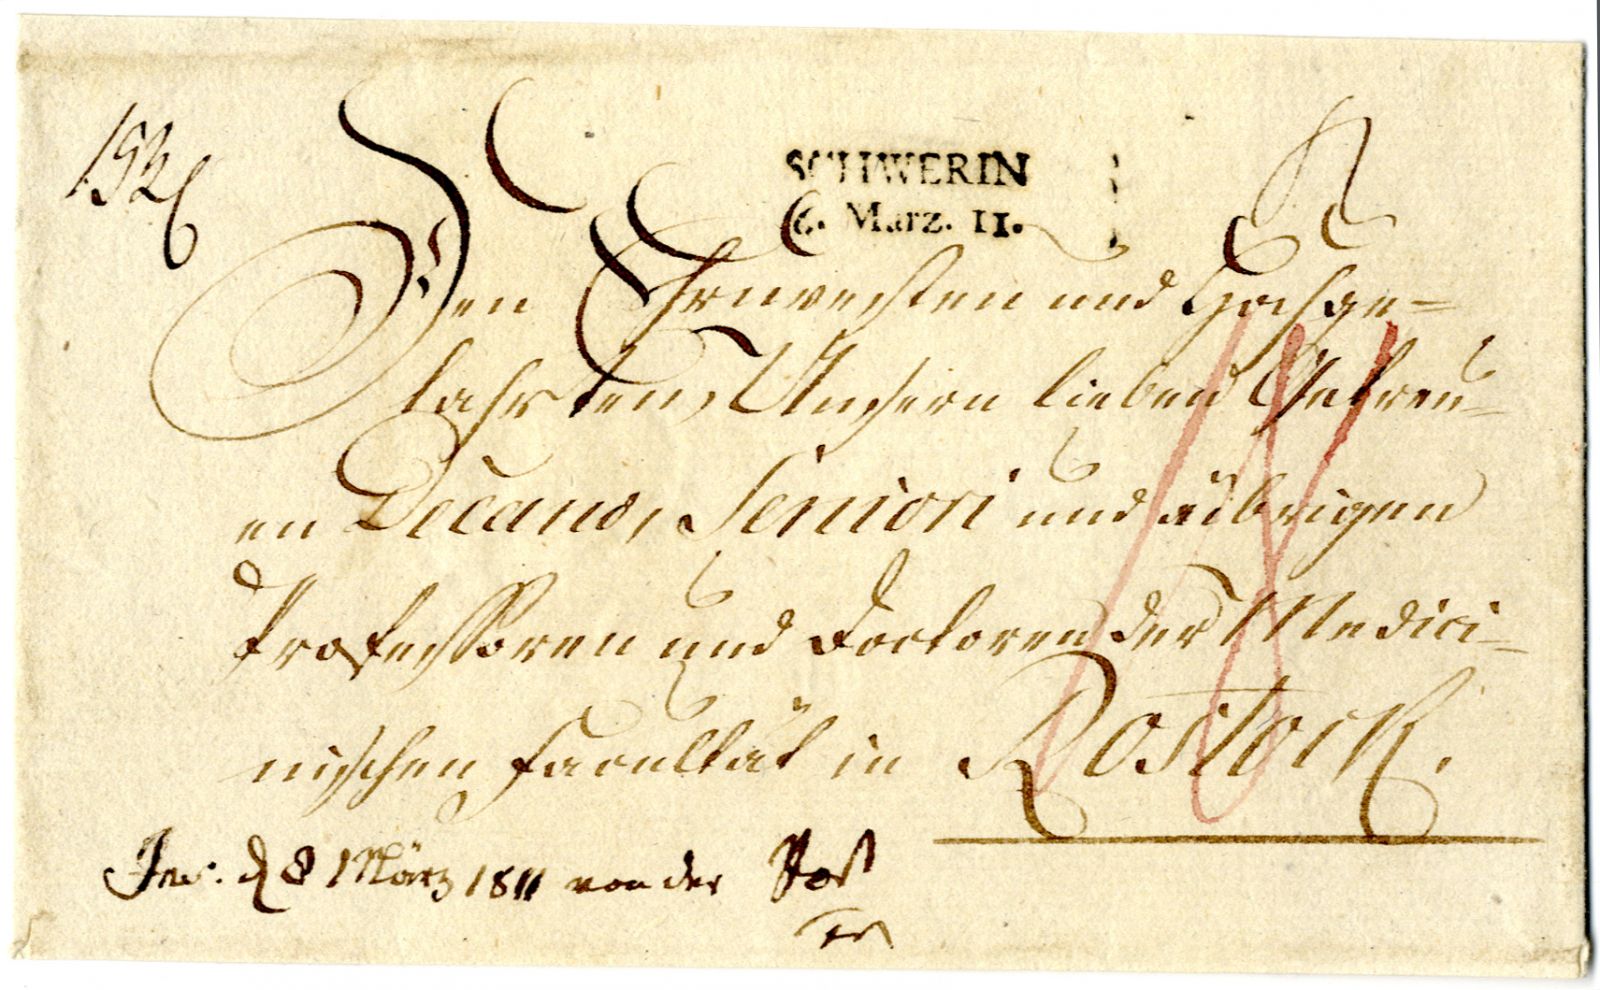 SCHWERIN
6. Marz. 11.
Den Ehrnvesten und Hochge=
lahrten, Unsern lieben Getreu=
en Decano, Seniori und übrigen
Professoren und Doctoren der Medici=
nischen Facultät in Rostock.
d 8 März 1811 von der Post